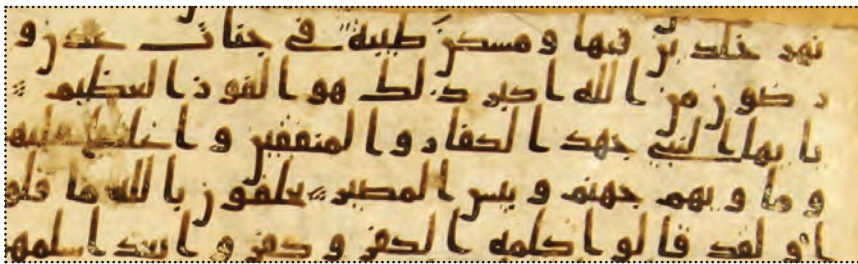 نهر خلدين فيها ومسكن طيبة في جنات عدن و
رضون من الله اكبر ذلك هو الفوز العظيم
يايها النبي جهد الكفار والمنفقين واغلظ عليهم
وماويهم جهنم وبيس المصير يحلفون بالله ما قالو
ا ولقد قالوا كلمة الكفر وكفروا بعد اسلمهم